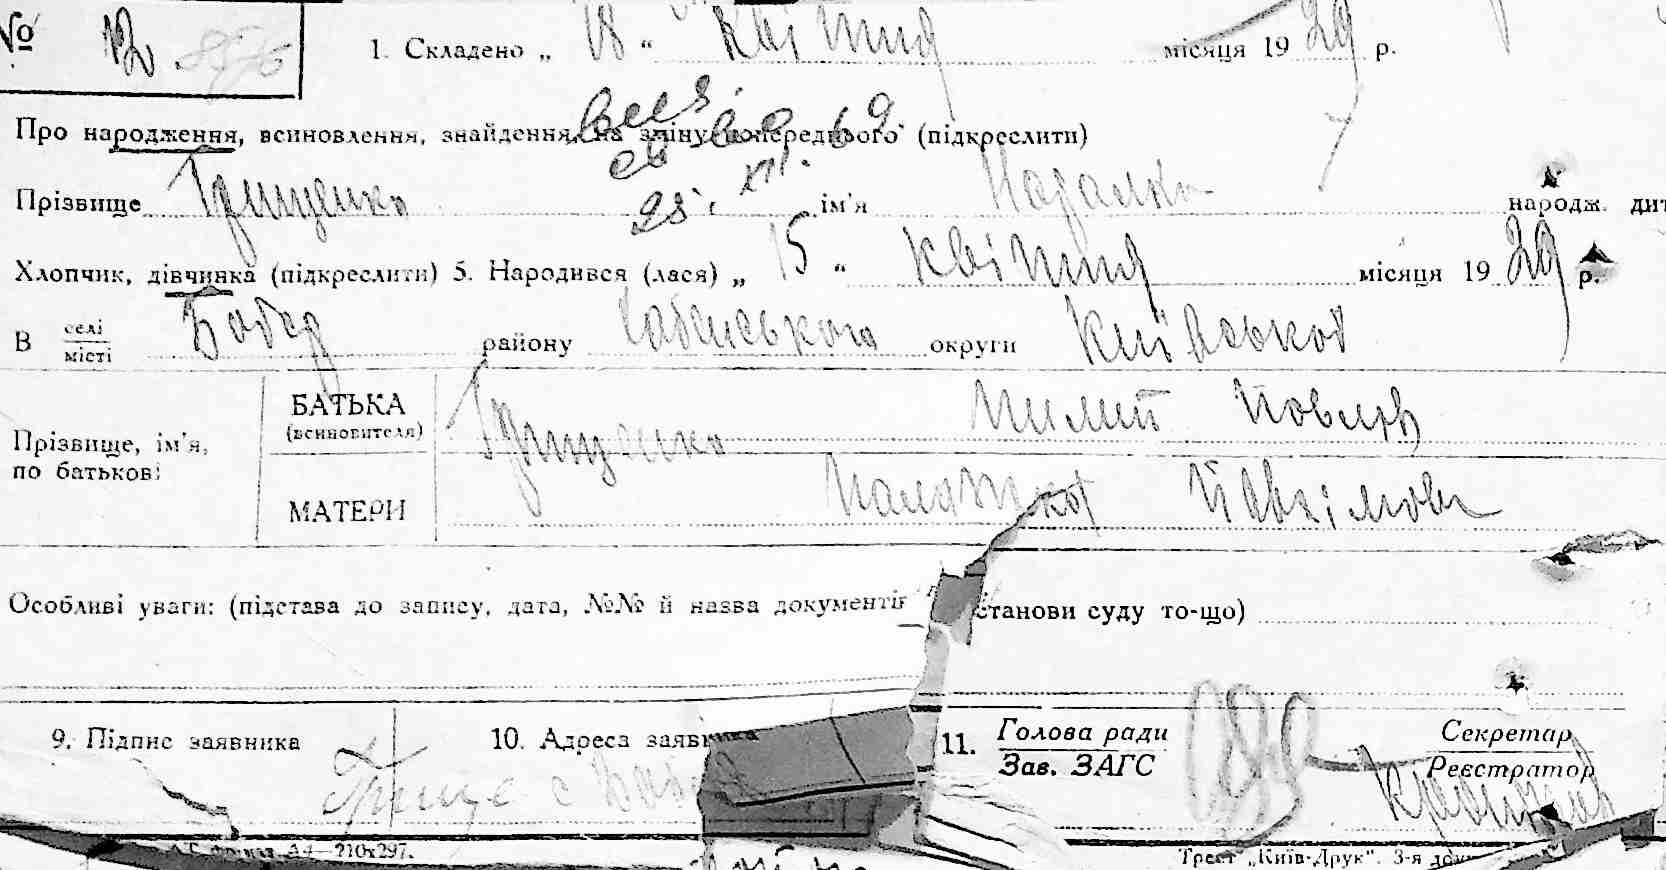 № 12 1. Складено „ 18 “ квітня місяця 19 29 р.
Про народження, всиновлення, знайдення, на зміну попереднього (підкреслити)
Прізвище Грищенко ім'я Наталка народж. дит
25. XII. 69
Хлопчик, дівчинка (підкреслити) 5. Народився (лася) „ 15 “ квітня місяця 19 29 р.
В селі місті Бобер району округи Київської
Прізвище, ім'я, по батькові:
БАТЬКА (всиновителя) Грищенко Пилип Павлов
МАТЕРИ Палажка
Особливі уваги: (підстава до запису, дата, №№ й назва документів станови суду то-що)
9. Підпис заявника 10. Адреса заяв 11. Голова ради Зав. ЗАГС Секретар Реєстратор
А4—210х297. Трест „Київ-Друк“. 3-я